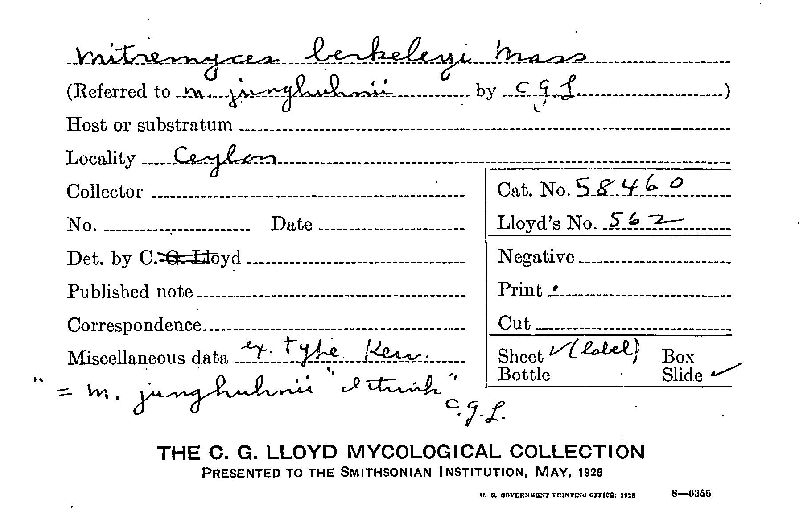 Mitremyces berkeleyi Mass
(Referred to m. junghuhnii by C G L )
Host or substratum
Locality Ceylon
Collector
Cat. No. 58460
No. Date
Lloyd's No. 562
Det. by C. G. Lloyd
Negative
Published note
Print
Correspondence
Cut
Miscellaneous data ex. Type Kew.
Sheet ✓ (label) Box
Bottle Slide ✓
" = m. junghuhnii "I think"
C.G.L.
THE C. G. LLOYD MYCOLOGICAL COLLECTION
PRESENTED TO THE SMITHSONIAN INSTITUTION, MAY, 1928
U. S. GOVERNMENT PRINTING OFFICE: 1928 8—6355